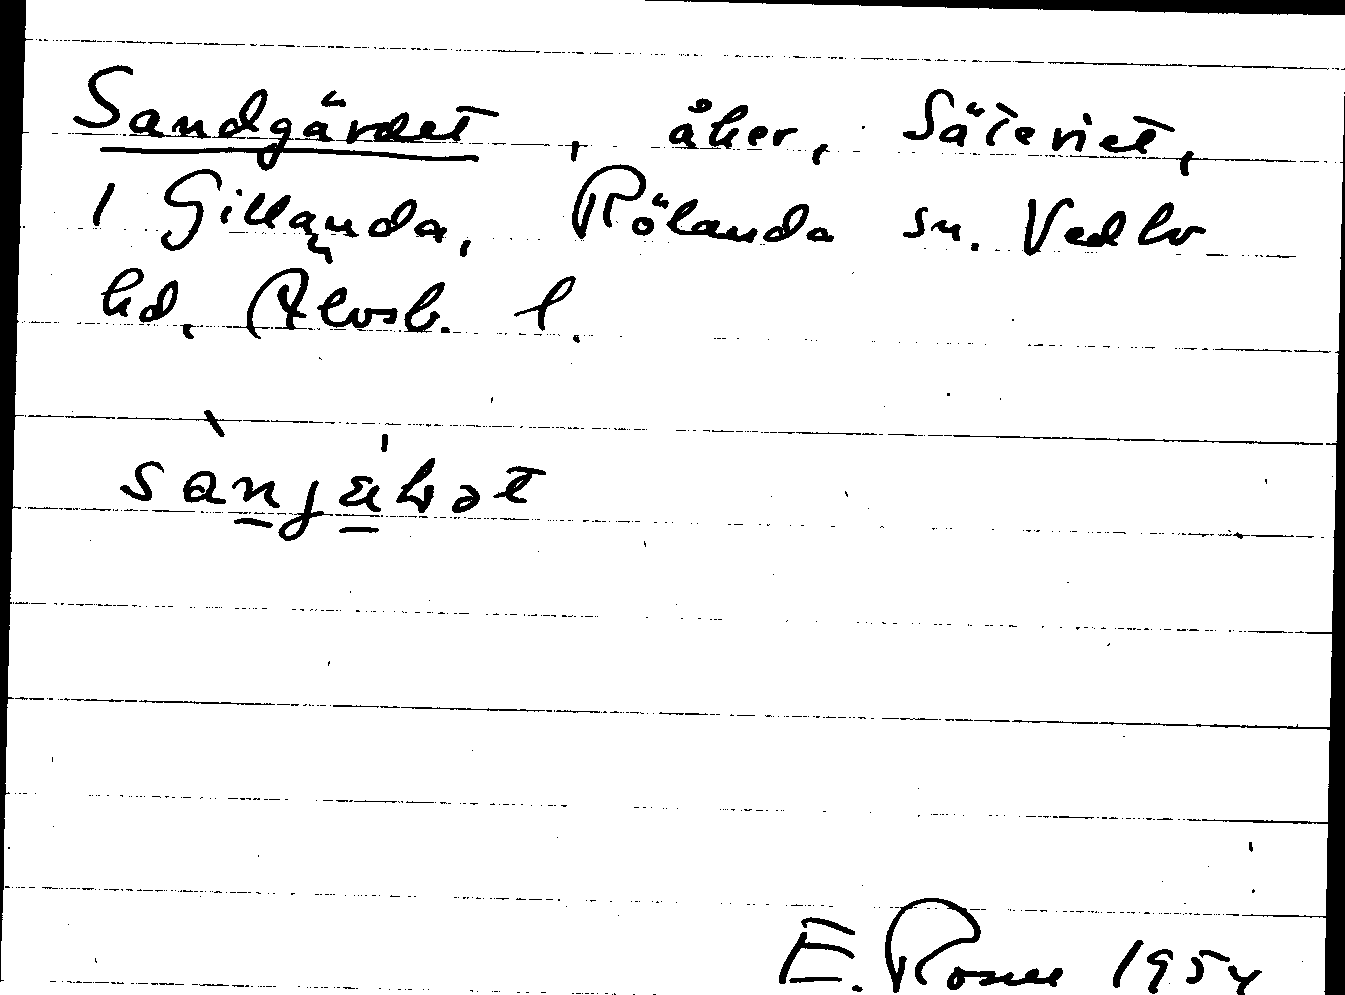 Sandgärdet, åker, Säteriet,
1 Gillanda, Rölanda sn. Vedbo
hd, Älvsb. l.
E. Rosell 1954